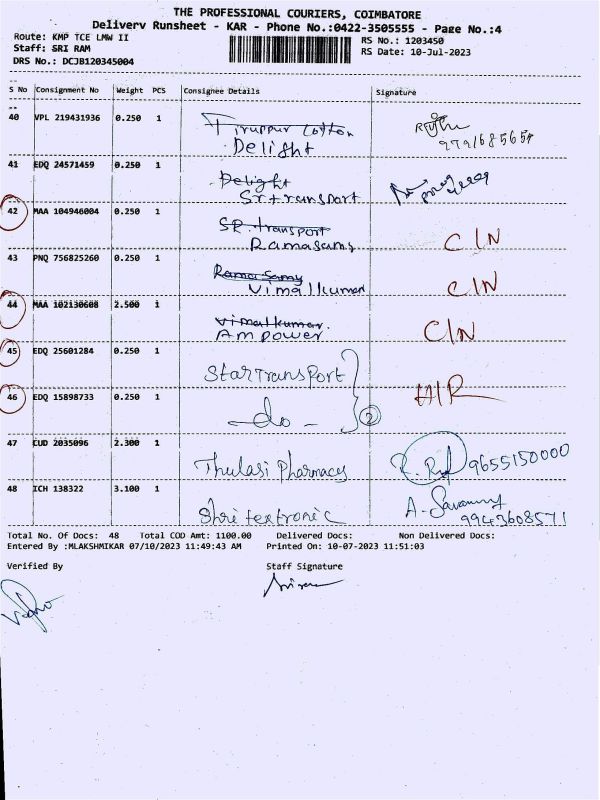 THE PROFESSIONAL COURIERS, COIMBATORE
Delivery Runsheet - KAR - Phone No.:0422-3505555 - Page No.:4
Route: KMP TCE LMW II
RS No.: 1203450
Staff: SRI RAM
RS Date: 10-Jul-2023
DRS No.: DCJB120345004
S No Consignment No Weight PCS Consignee Details Signature
40 VPL 219431936 0.250 1 Tiruppur Cotton
Delight
41 EDQ 24571459 0.250 1 Delight
Sr+transport
42 MAA 104946004 0.250 1 SR. transport
Ramasamy C/N
43 PNQ 756825260 0.250 1 Rama Samy
Vimalkumar C/N
44 MAA 102130608 2.500 1 Vimalkumar
Ampower C/N
45 EDQ 25601284 0.250 1 Startransport
46 EDQ 15898733 0.250 1 -do- 2 H/R
47 CUD 2035096 2.300 1 Thulasi Pharmacy 9655150000
48 ICH 138322 3.100 1 Shri textronic A-Saravany
9943608571
Total No. Of Docs: 48 Total COD Amt: 1100.00 Delivered Docs: Non Delivered Docs:
Entered By :MLAKSHMIKAR 07/10/2023 11:49:43 AM Printed On: 10-07-2023 11:51:03
Verified By Staff Signature